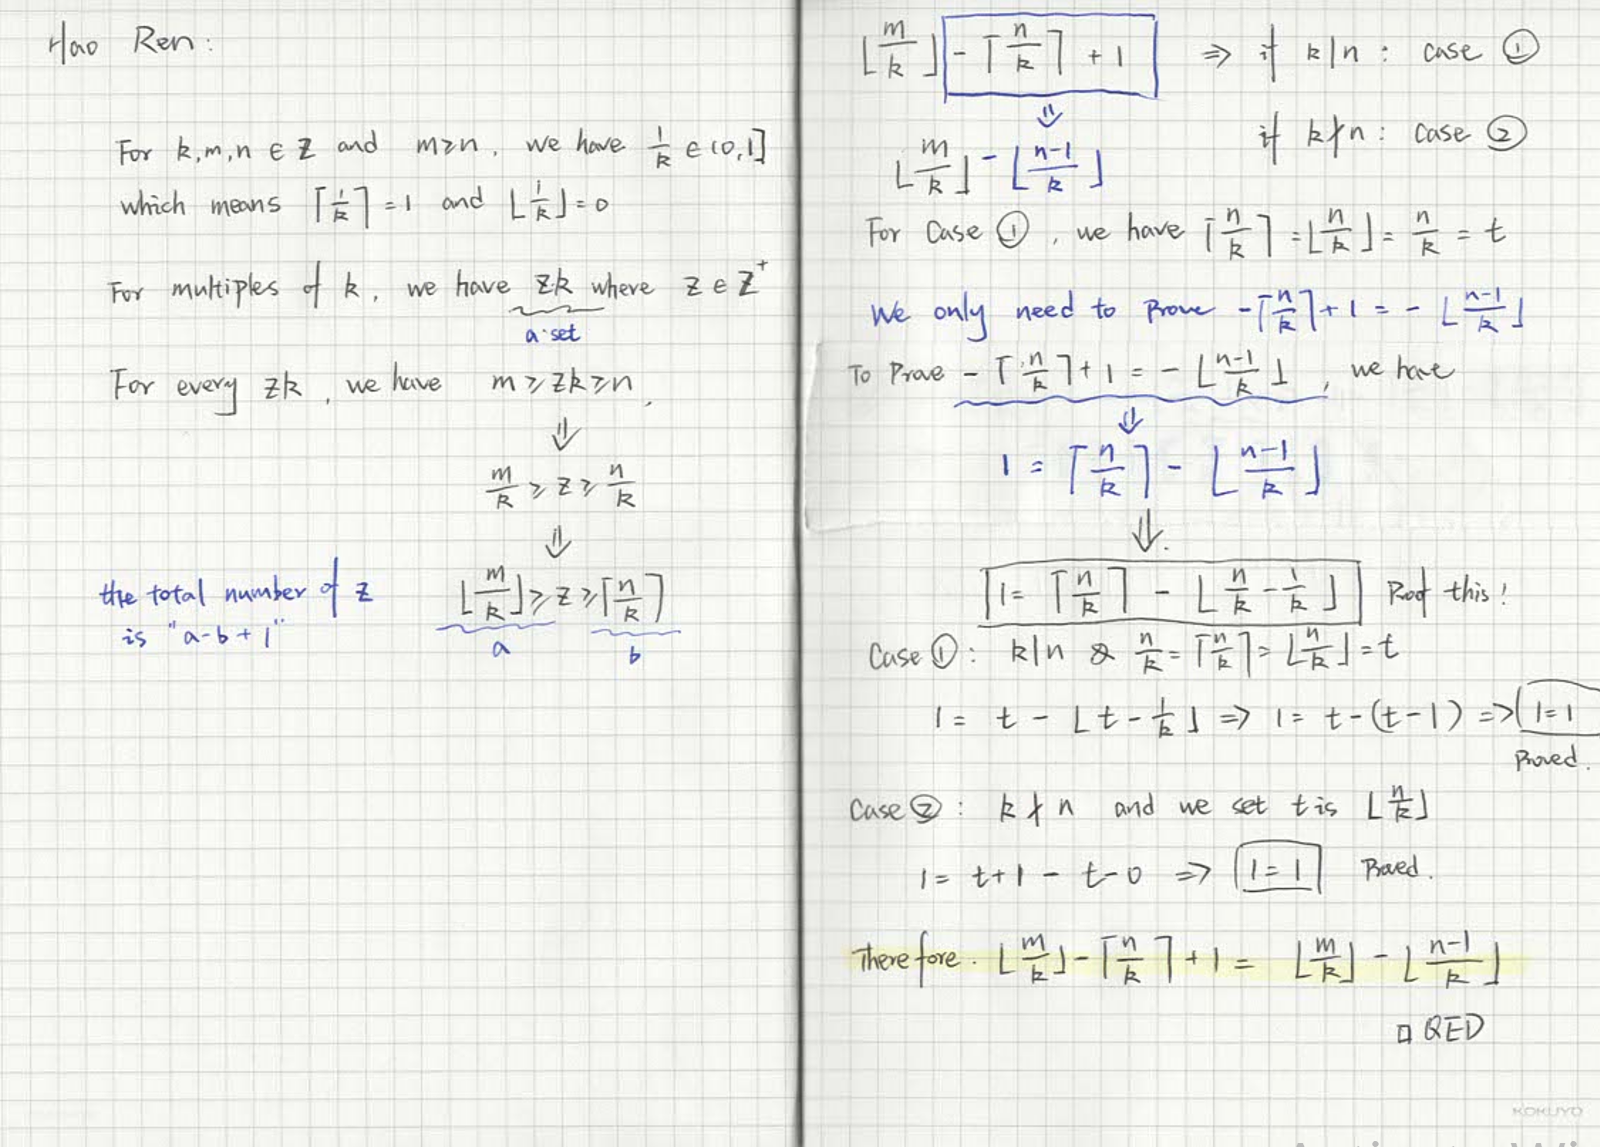 Hao Ren:
For k,m,n ∈ Z and m≥n, we have 1/k ∈ (0,1]
which means ⌈1/k⌉ = 1 and ⌊1/k⌋ = 0
For multiples of k, we have zk where z ∈ Z⁺
a set
For every zk, we have m ≥ zk ≥ n,
⇓
m/k ≥ z ≥ n/k
⇓
the total number of z
is "a-b+1"
⌊m/k⌋ ≥ z ≥ ⌈n/k⌉
a b
⌊m/k⌋ - ⌈n/k⌉ + 1 ⇒ if k|n: case ①
⇓
if k∤n: case ②
⌊m/k⌋ - ⌊(n-1)/k⌋
For Case ①, we have ⌈n/k⌉ = ⌊n/k⌋ = n/k = t
We only need to Prove -⌈n/k⌉+1 = -⌊(n-1)/k⌋
To Prove -⌈n/k⌉+1 = -⌊(n-1)/k⌋, we have
⇓
1 = ⌈n/k⌉ - ⌊(n-1)/k⌋
⇓.
1 = ⌈n/k⌉ - ⌊n/k - 1/k⌋ Proof this!
Case ①: k|n & n/k = ⌈n/k⌉ = ⌊n/k⌋ = t
1 = t - ⌊t - 1/k⌋ ⇒ 1 = t-(t-1) ⇒ 1=1
Proved.
Case ②: k∤n and we set t is ⌊n/k⌋
1 = t+1 - t-0 ⇒ 1=1 Proved.
Therefore. ⌊m/k⌋ - ⌈n/k⌉ + 1 = ⌊m/k⌋ - ⌊(n-1)/k⌋
□ QED
KOKUYO